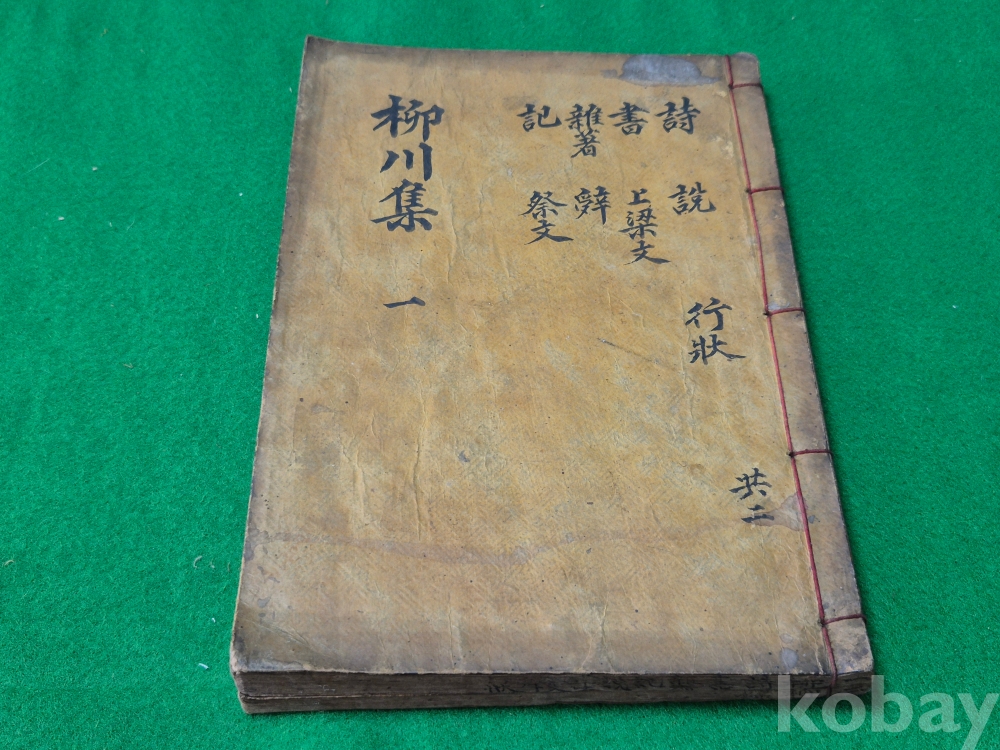 柳川集 一
詩 說 行狀
書 上梁文
雜著 辭
記 祭文
共二
kobay